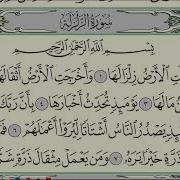 سُورَةُ الزَّلْزَلَةِ
بِسْمِ اللَّهِ الرَّحْمَٰنِ الرَّحِيمِ
تِ الْأَرْضُ زِلْزَالَهَا ١ وَأَخْرَجَتِ الْأَرْضُ أَثْقَالَهَا
مَا لَهَا ٣ يَوْمَئِذٍ تُحَدِّثُ أَخْبَارَهَا ٤ بِأَنَّ رَبَّكَ
يَصْدُرُ النَّاسُ أَشْتَاتًا لِّيُرَوْا أَعْمَٰلَهُمْ ٦
ذَرَّةٍ خَيْرًا يَرَهُ ٧ وَمَن يَعْمَلْ مِثْقَالَ ذَرَّةٍ